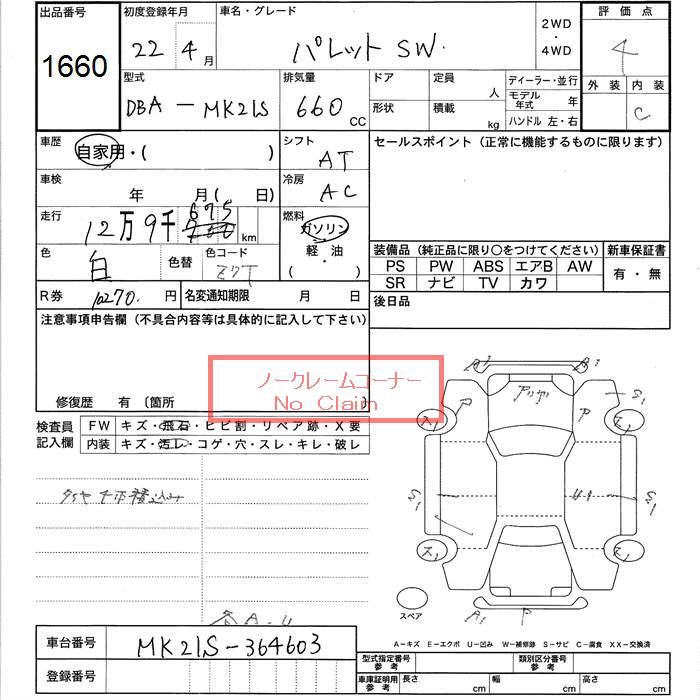 出品番号 初度登録年月 車名・グレード 2WD・4WD 評価点
1660 22年 4月 パレット SW 4
型式 排気量 ドア 定員 人 ディーラー・並行 外装 内装
DBA-MK21S 660 CC 形状 積載 kg モデル年式 年 C
ハンドル 左・右
車歴 自家用・( ) シフト AT セールスポイント(正常に機能するものに限ります)
車検 年 月( 日) 冷房 AC
走行 12万9千675 km 燃料 ガソリン
色 白 色替 色コード Z7T 軽・油 ( )
装備品(純正品に限り○をつけてください) 新車保証書
PS PW ABS エアB AW 有・無
SR ナビ TV カワ
R券 10270. 円 名変通知期限 月 日 後日品
注意事項申告欄(不具合内容等は具体的に記入して下さい)
ノークレームコーナー
No Claim
修復歴 有 〔箇所
検査員記入欄 FW キズ・飛石・ヒビ割・リペア跡・X要
内装 キズ・汚レ・コゲ・穴・スレ・キレ・破レ
A1 A1
P P S1
ス1 ス1
S1 U1 S1
ス1 ス1
スペア A1 P
各A-U
A-キズ E-エクボ U-凹み W-補修跡 S-サビ C-腐食 XX-交換済
車台番号 MK21S-364603
登録番号
型式指定番号 参考 類別区分番号 参考
車庫証明用 参考 長さ cm 幅 cm 高さ cm